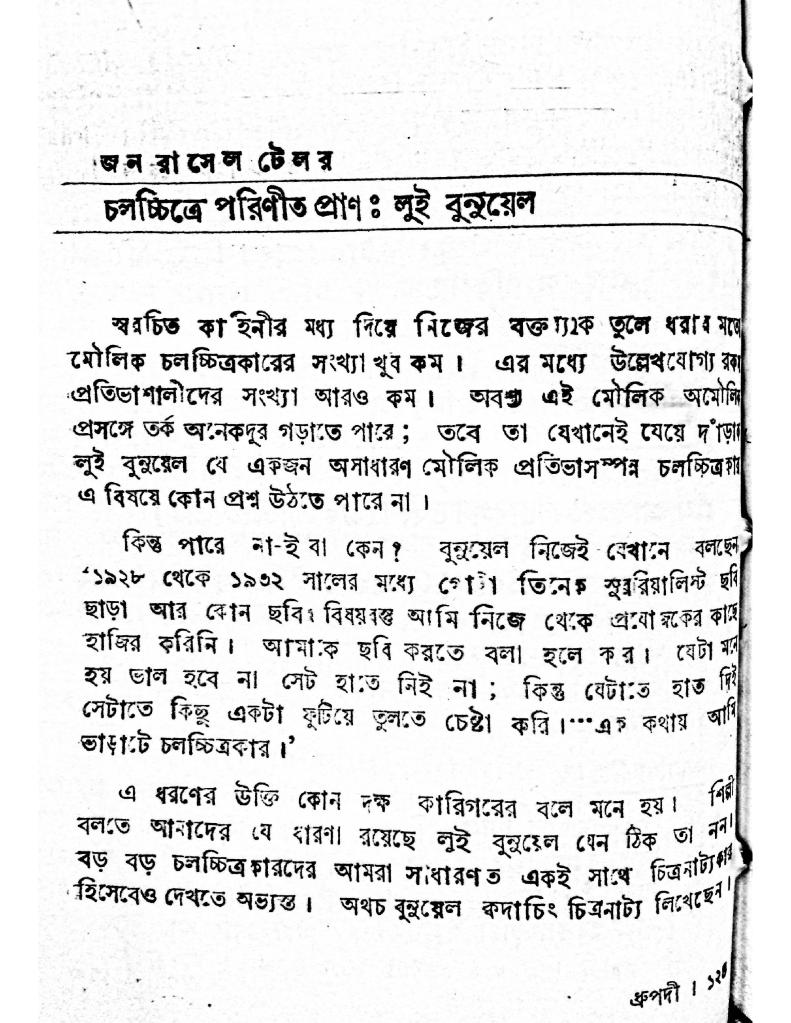 জন রাসেল টেলর
চলচ্চিত্রে পরিণীত প্রাণ : লুই বুনুয়েল
স্বরচিত কাহিনীর মধ্য দিয়ে নিজের বক্তব্যকে তুলে ধরার মতো
মৌলিক চলচ্চিত্রকারের সংখ্যা খুব কম । এর মধ্যে উল্লেখযোগ্য
প্রতিভাশালীদের সংখ্যা আরও কম । অবশ্য এই মৌলিক অমৌলিক
প্রসঙ্গে তর্ক অনেকদূর গড়াতে পারে ; তবে তা যেখানেই যেয়ে দাঁড়াক
লুই বুনুয়েল যে একজন অসাধারণ মৌলিক প্রতিভাসম্পন্ন চলচ্চিত্রকার
এ বিষয়ে কোন প্রশ্ন উঠতে পারে না ।
কিন্তু পারে না-ই বা কেন ? বুনুয়েল নিজেই যেখানে বলছেন
‘১৯২৮ থেকে ১৯৩২ সালের মধ্যে গোটা তিনেক সুররিয়ালিস্ট ছবি
ছাড়া আর কোন ছবির বিষয়বস্তু আমি নিজে থেকে প্রযোজকের কাছে
হাজির করিনি । আমাকে ছবি করতে বলা হলে করি । যেটা মনে
হয় ভাল হবে না সেটা হাতে নিই না ; কিন্তু যেটাতে হাত দিই
সেটাতে কিছু একটা ফুটিয়ে তুলতে চেষ্টা করি ।···এক কথায় আমি
ভাড়াটে চলচ্চিত্রকার ।’
এ ধরণের উক্তি কোন দক্ষ কারিগরের বলে মনে হয় । শিল্পী
বলতে আমাদের যে ধারণা রয়েছে লুই বুনুয়েল যেন ঠিক তা নন ।
বড় বড় চলচ্চিত্রকারদের আমরা সাধারণত একই সাথে চিত্রনাট্যকার
হিসেবেও দেখতে অভ্যস্ত । অথচ বুনুয়েল কদাচিৎ চিত্রনাট্য লিখেছেন ।
ধ্রুপদী ।